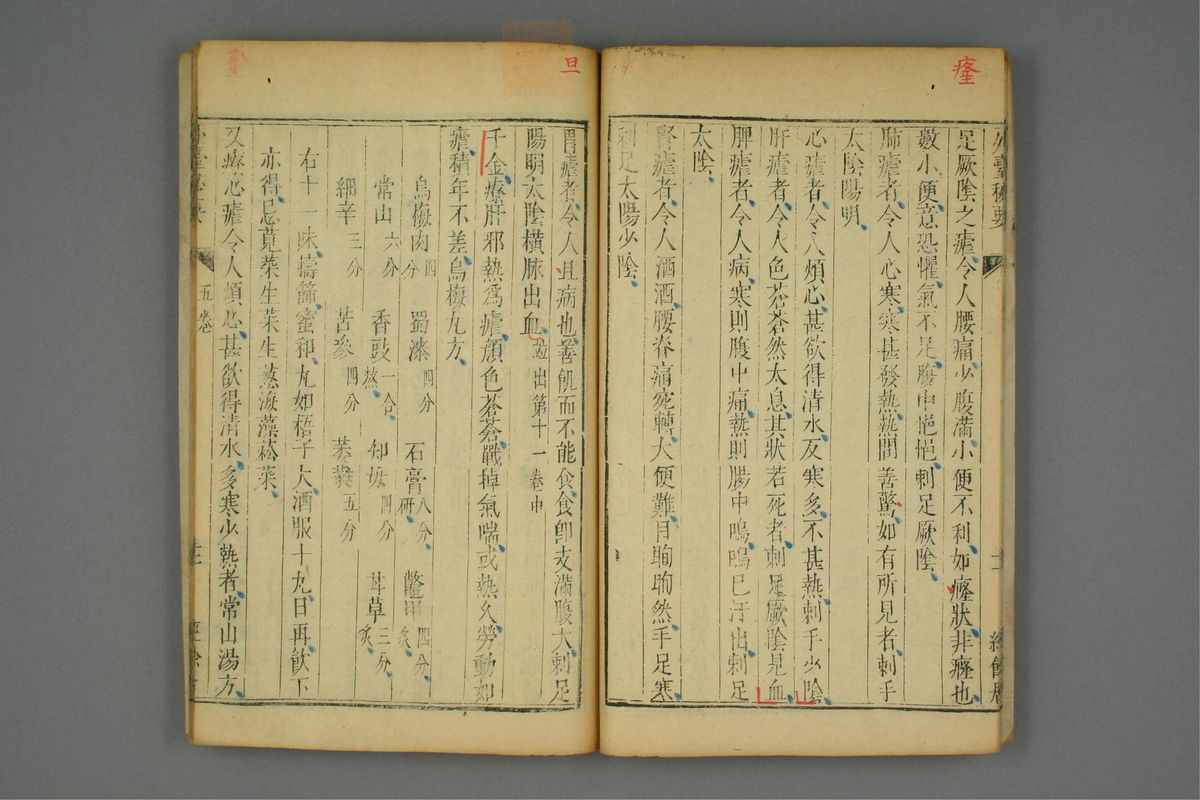 瘞
外臺秘要
足厥陰之瘧令人腰痛少腹滿小便不利如癃狀非癃也
數小便意恐懼氣不足腹中悒悒刺足厥陰
肺瘧者令人心寒寒甚發熱熱間善驚如有所見者刺手
太陰陽明
心瘧者令人煩心甚欲得清水及寒多不甚熱刺手少陰
肝瘧者令人色蒼蒼然太息其狀若死者刺足厥陰見血
脾瘧者令人病寒則腹中痛熱則腸中鳴鳴已汗出刺足
太陰
腎瘧者令人洒洒腰脊痛宛轉大便難目眴眴然手足寒
刺足太陽少陰
旦
胃瘧者令人且病也善飢而不能食食即支滿腹大刺足
陽明太陰橫脉出血並出第十一卷中
千金療肝邪熱爲瘧顏色蒼蒼戰掉氣喘或熱久勞動如
瘧積年不差烏梅丸方
烏梅肉四分 蜀漆四分 石膏八分研 鱉甲四分炙
常山六分 香豉一合熬 知母四分 甘草三分炙
細辛三分 苦參四分 萎蕤五分
右十一味擣篩蜜和丸如梧子大酒服十丸日再飲下
亦得忌莧菜生菜生蔥海藻菘菜
又療心瘧令人煩心甚欲得清水多寒少熱者常山湯方
五卷